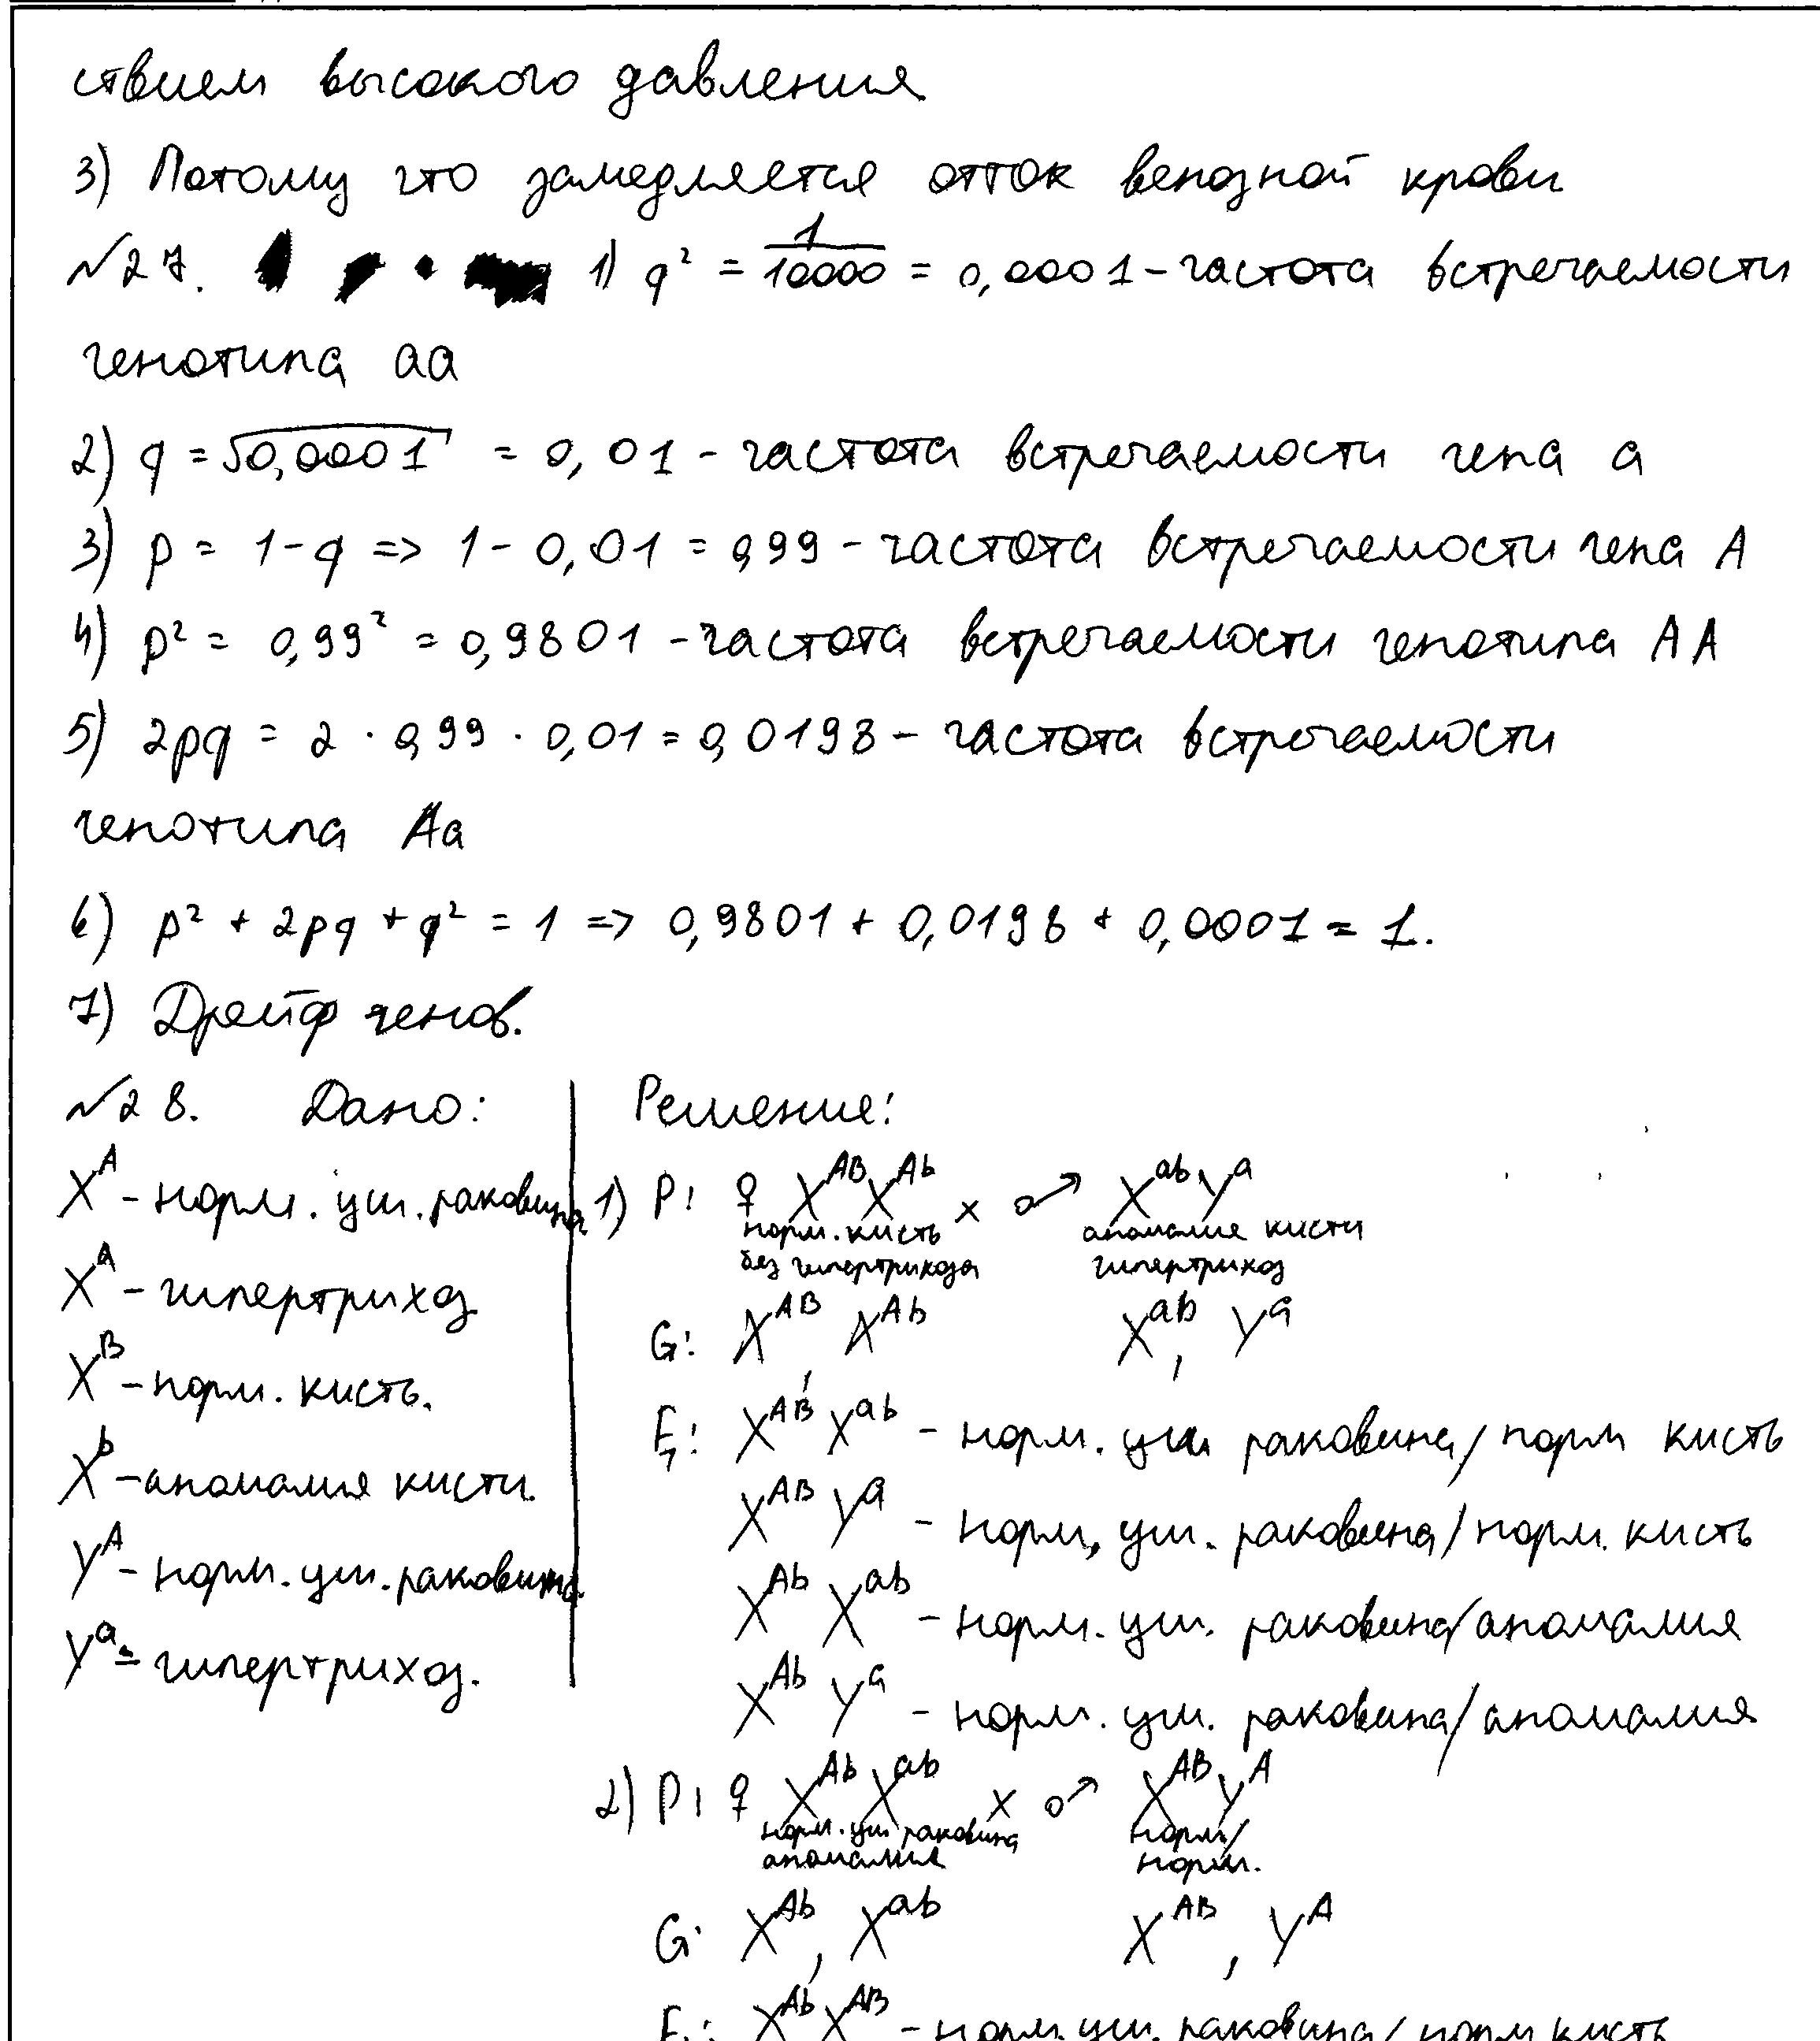 ствием высокого давления
3) Потому что замедляется отток венозной крови
№27. 1) q² = 1/10000 = 0,0001 - частота встречаемости
генотипа аа
2) q = √0,0001 = 0,01 - частота встречаемости гена а
3) p = 1-q => 1-0,01 = 0,99 - частота встречаемости гена А
4) p² = 0,99² = 0,9801 - частота встречаемости генотипа АА
5) 2pq = 2 · 0,99 · 0,01 = 0,0198 - частота встречаемости
генотипа Аа
6) p² + 2pq + q² = 1 => 0,9801 + 0,0198 + 0,0001 = 1.
7) Дрейф генов.
№28. Дано:
X^A - норм. уш. раковина
X^a - гипертрихоз
X^B - норм. кисть.
X^b - аномалия кисти.
Y^A - норм. уш. раковина
Y^a - гипертрихоз.
Решение:
1) P: ♀ X^AB X^Ab x ♂ X^ab Y^a
норм. кисть аномалия кисти
без гипертрихоза гипертрихоз
G: X^AB, X^Ab X^ab, Y^a
F₁: X^AB X^ab - норм. уш раковина/норм кисть
X^AB Y^a - норм. уш. раковина/норм. кисть
X^Ab X^ab - норм. уш. раковина/аномалия
X^Ab Y^a - норм. уш. раковина/аномалия
2) P: ♀ X^Ab X^ab x ♂ X^AB Y^A
норм. уш раковина норм/
аномалия норм.
G: X^Ab, X^ab X^AB, Y^A
F₁: X^Ab X^AB - норм. уш. раковина/норм кисть